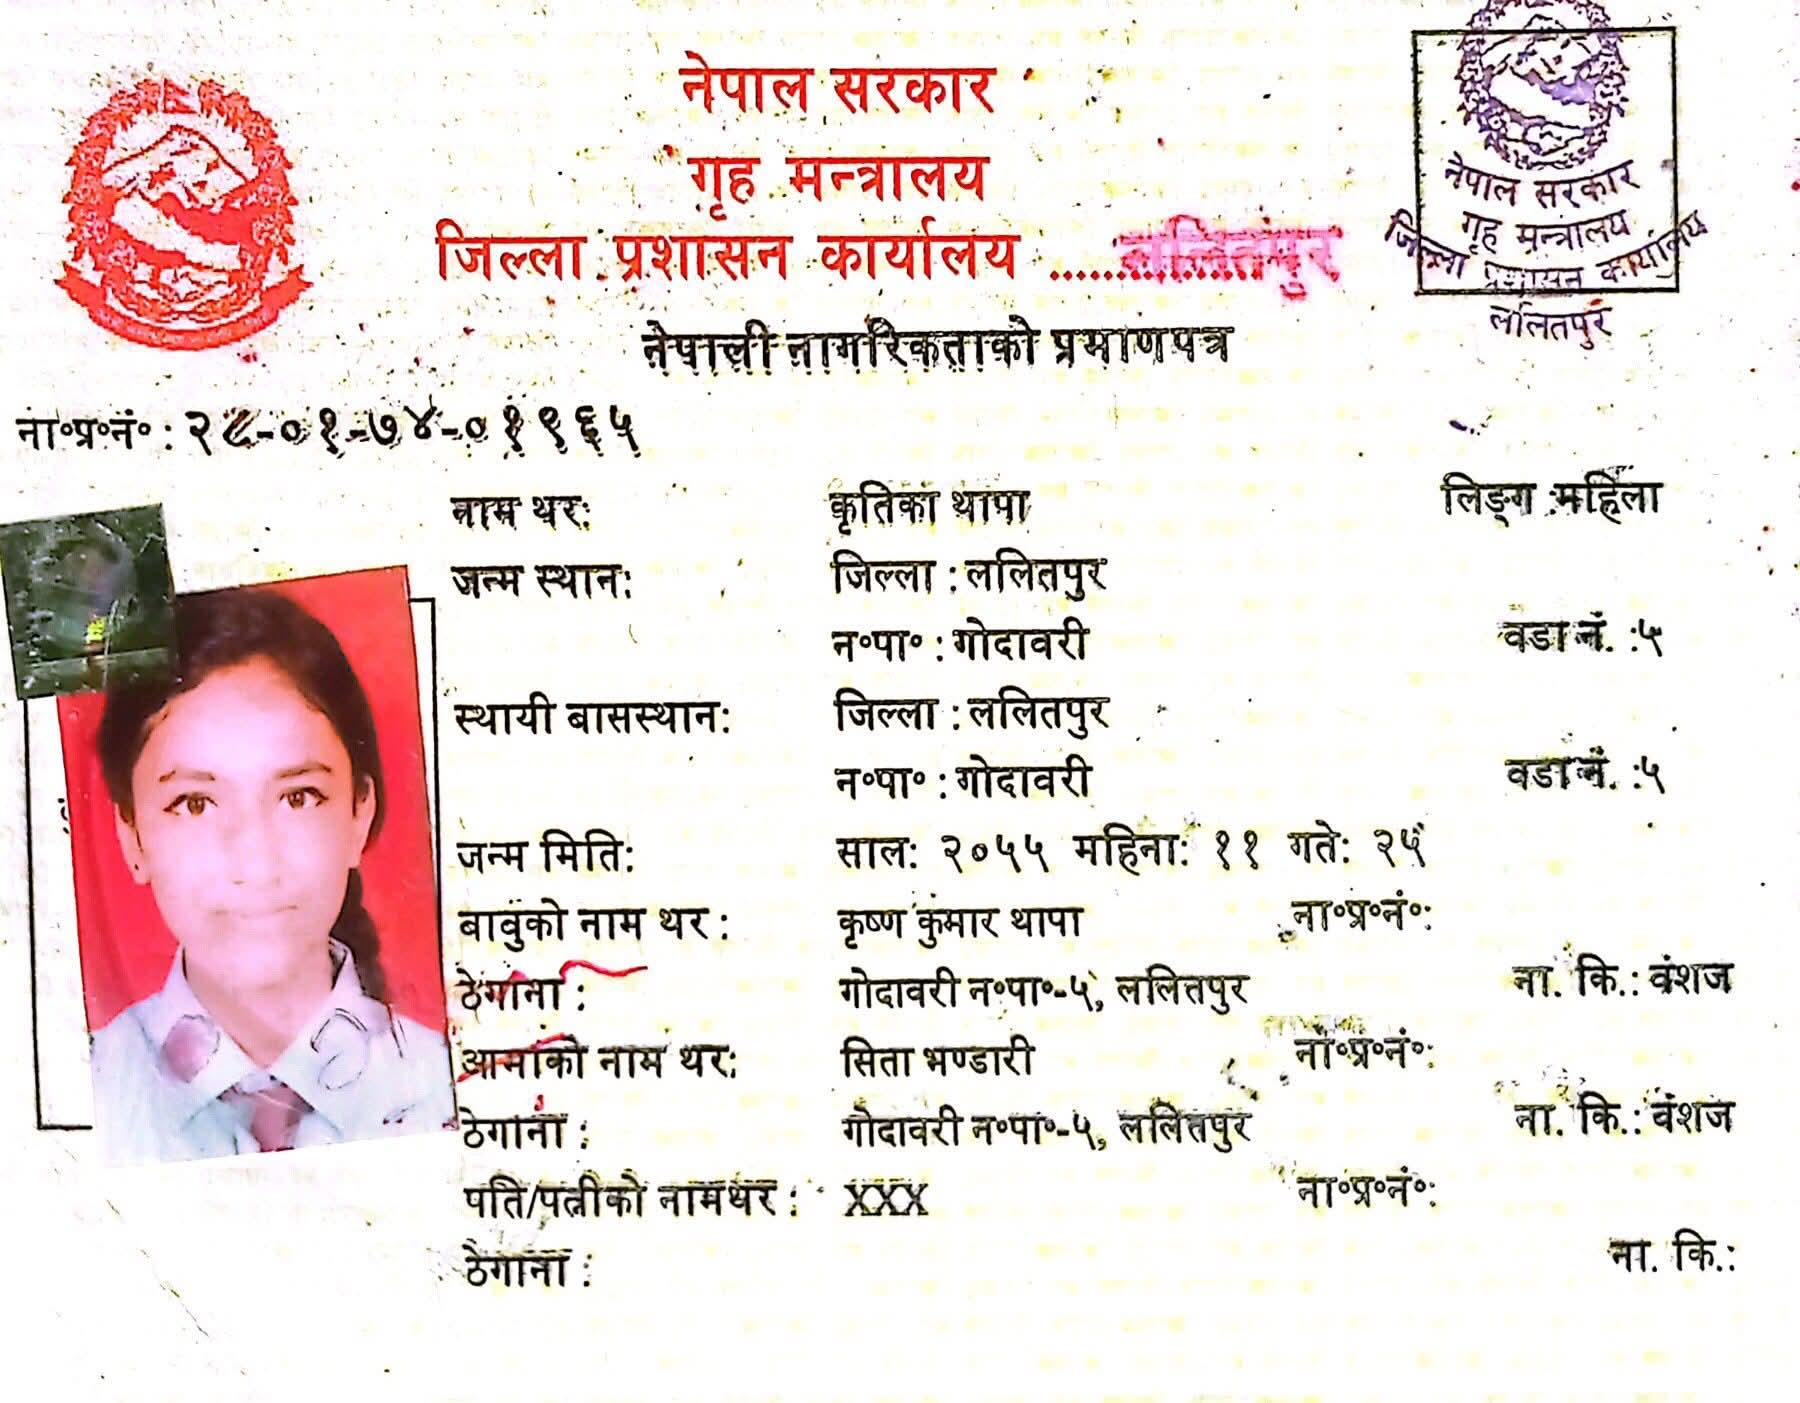 नेपाल सरकार
गृह मन्त्रालय
जिल्ला प्रशासन कार्यालय ......ललितपुर
नेपाल सरकार
गृह मन्त्रालय
जिल्ला प्रशासन कार्यालय
ललितपुर
नेपाली नागरिकताको प्रमाणपत्र
ना॰प्र॰नं॰ : २८-०१-७४-०१९६५
नाम थर: कृतिका थापा लिङ्ग :महिला
जन्म स्थान: जिल्ला : ललितपुर
न॰पा॰ : गोदावरी वडा नं. :५
स्थायी बासस्थान: जिल्ला : ललितपुर
न॰पा॰ : गोदावरी वडा नं. :५
जन्म मिति: साल: २०५५ महिना: ११ गते: २५
बाबुको नाम थर : कृष्ण कुमार थापा ना॰प्र॰नं॰:
ठेगाना : गोदावरी न॰पा॰-५, ललितपुर ना. कि.: वंशज
आमाको नाम थर: सिता भण्डारी ना॰प्र॰नं॰:
ठेगाना : गोदावरी न॰पा॰-५, ललितपुर ना. कि.: वंशज
पति/पत्नीको नामथर : XXX ना॰प्र॰नं॰:
ठेगाना : ना. कि.: